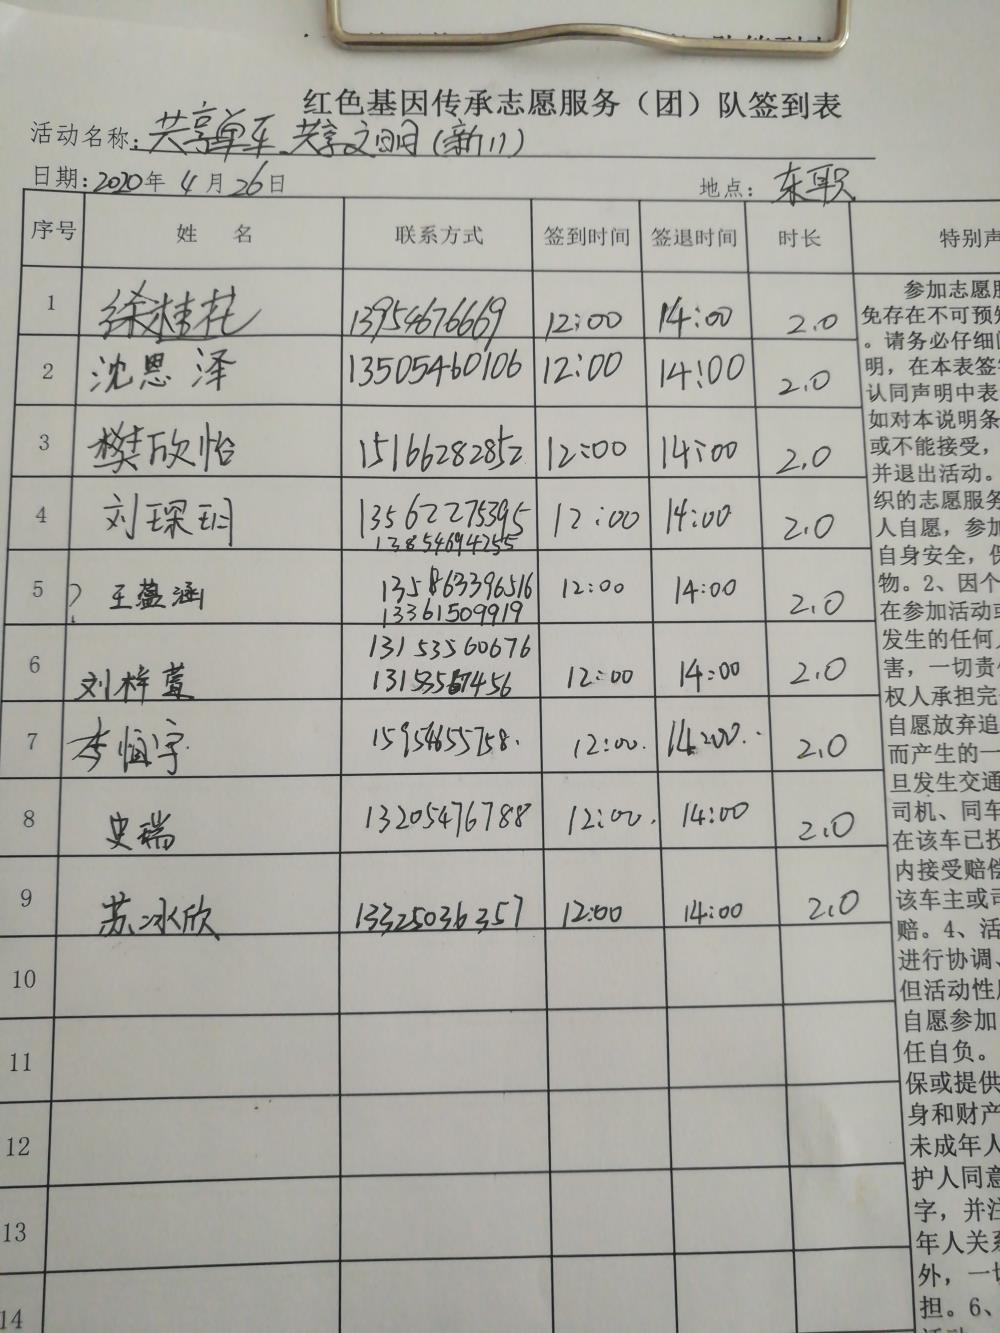 红色基因传承志愿服务（团）队签到表
活动名称：共享单车 共享文明（新11）
日期：2020年 4月26日 地点：东职
序号 姓 名 联系方式 签到时间 签退时间 时长 特别声
1 徐桂花 13954676669 12:00 14:00 2.0
2 沈思泽 13505460106 12:00 14:00 2.0
3 樊欣怡 15166282852 12:00 14:00 2.0
4 刘琛玥 13562275395 12:00 14:00 2.0
13854694255
5 王蕴涵 135863396516 12:00 14:00 2.0
13361509919
6 刘梓萱 13153560676 12:00 14:00 2.0
7 李恒宇 15954655758. 12:00. 14:00. 2.0
8 史瑞 13205476788 12:00. 14:00 2.0
9 苏冰欣 13325036357 12:00 14:00 2.0
10
11
12
13
14
参加志愿服
免存在不可预知
。请务必仔细阅
明，在本表签字
认同声明中表
如对本说明条
或不能接受，
并退出活动。
织的志愿服务
人自愿，参加
自身安全，保
物。2、因个
在参加活动或
发生的任何人
害，一切责任
权人承担完
自愿放弃追
而产生的一
旦发生交通
司机、同车
在该车已投
内接受赔偿
该车主或司
赔。4、活
进行协调、
但活动性质
自愿参加
任自负。
保或提供
身和财产
未成年人
护人同意
字，并注
年人关系
外，一切
担。6、